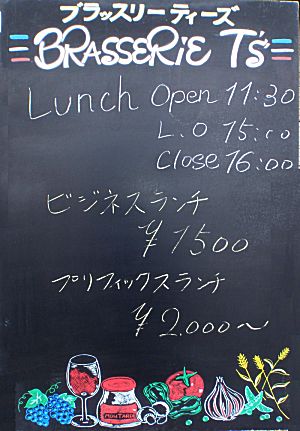 ブラッスリー ティーズ
BRASSERiE T's
Lunch Open 11:30
L.O 15:00
Close 16:00
ビジネスランチ
¥1500
プリフィックスランチ
¥2.000〜
MOUTARDE